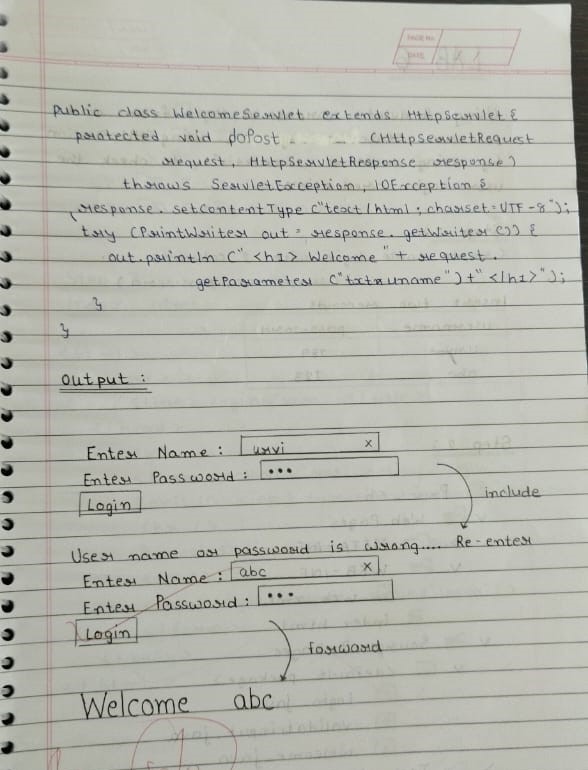 PAGE NO.
DATE
public class WelcomeServlet extends HttpServlet {
protected void doPost - - (HttpServletRequest
request, HttpServletResponse response)
throws ServletException, IOException {
response. setContentType ("text/html ; charset = UTF-8");
try (PrintWriter out = response. getWriter ()) {
out.println (" <h1> Welcome "+ request.
getParameter ("txtuname") +" </h1>");
}
}
output :
Enter Name : urvi x
Enter Password : •••
Login
include
User name or password is wrong.... Re-enter
Enter Name : abc x
Enter Password : •••
Login
forward
Welcome abc